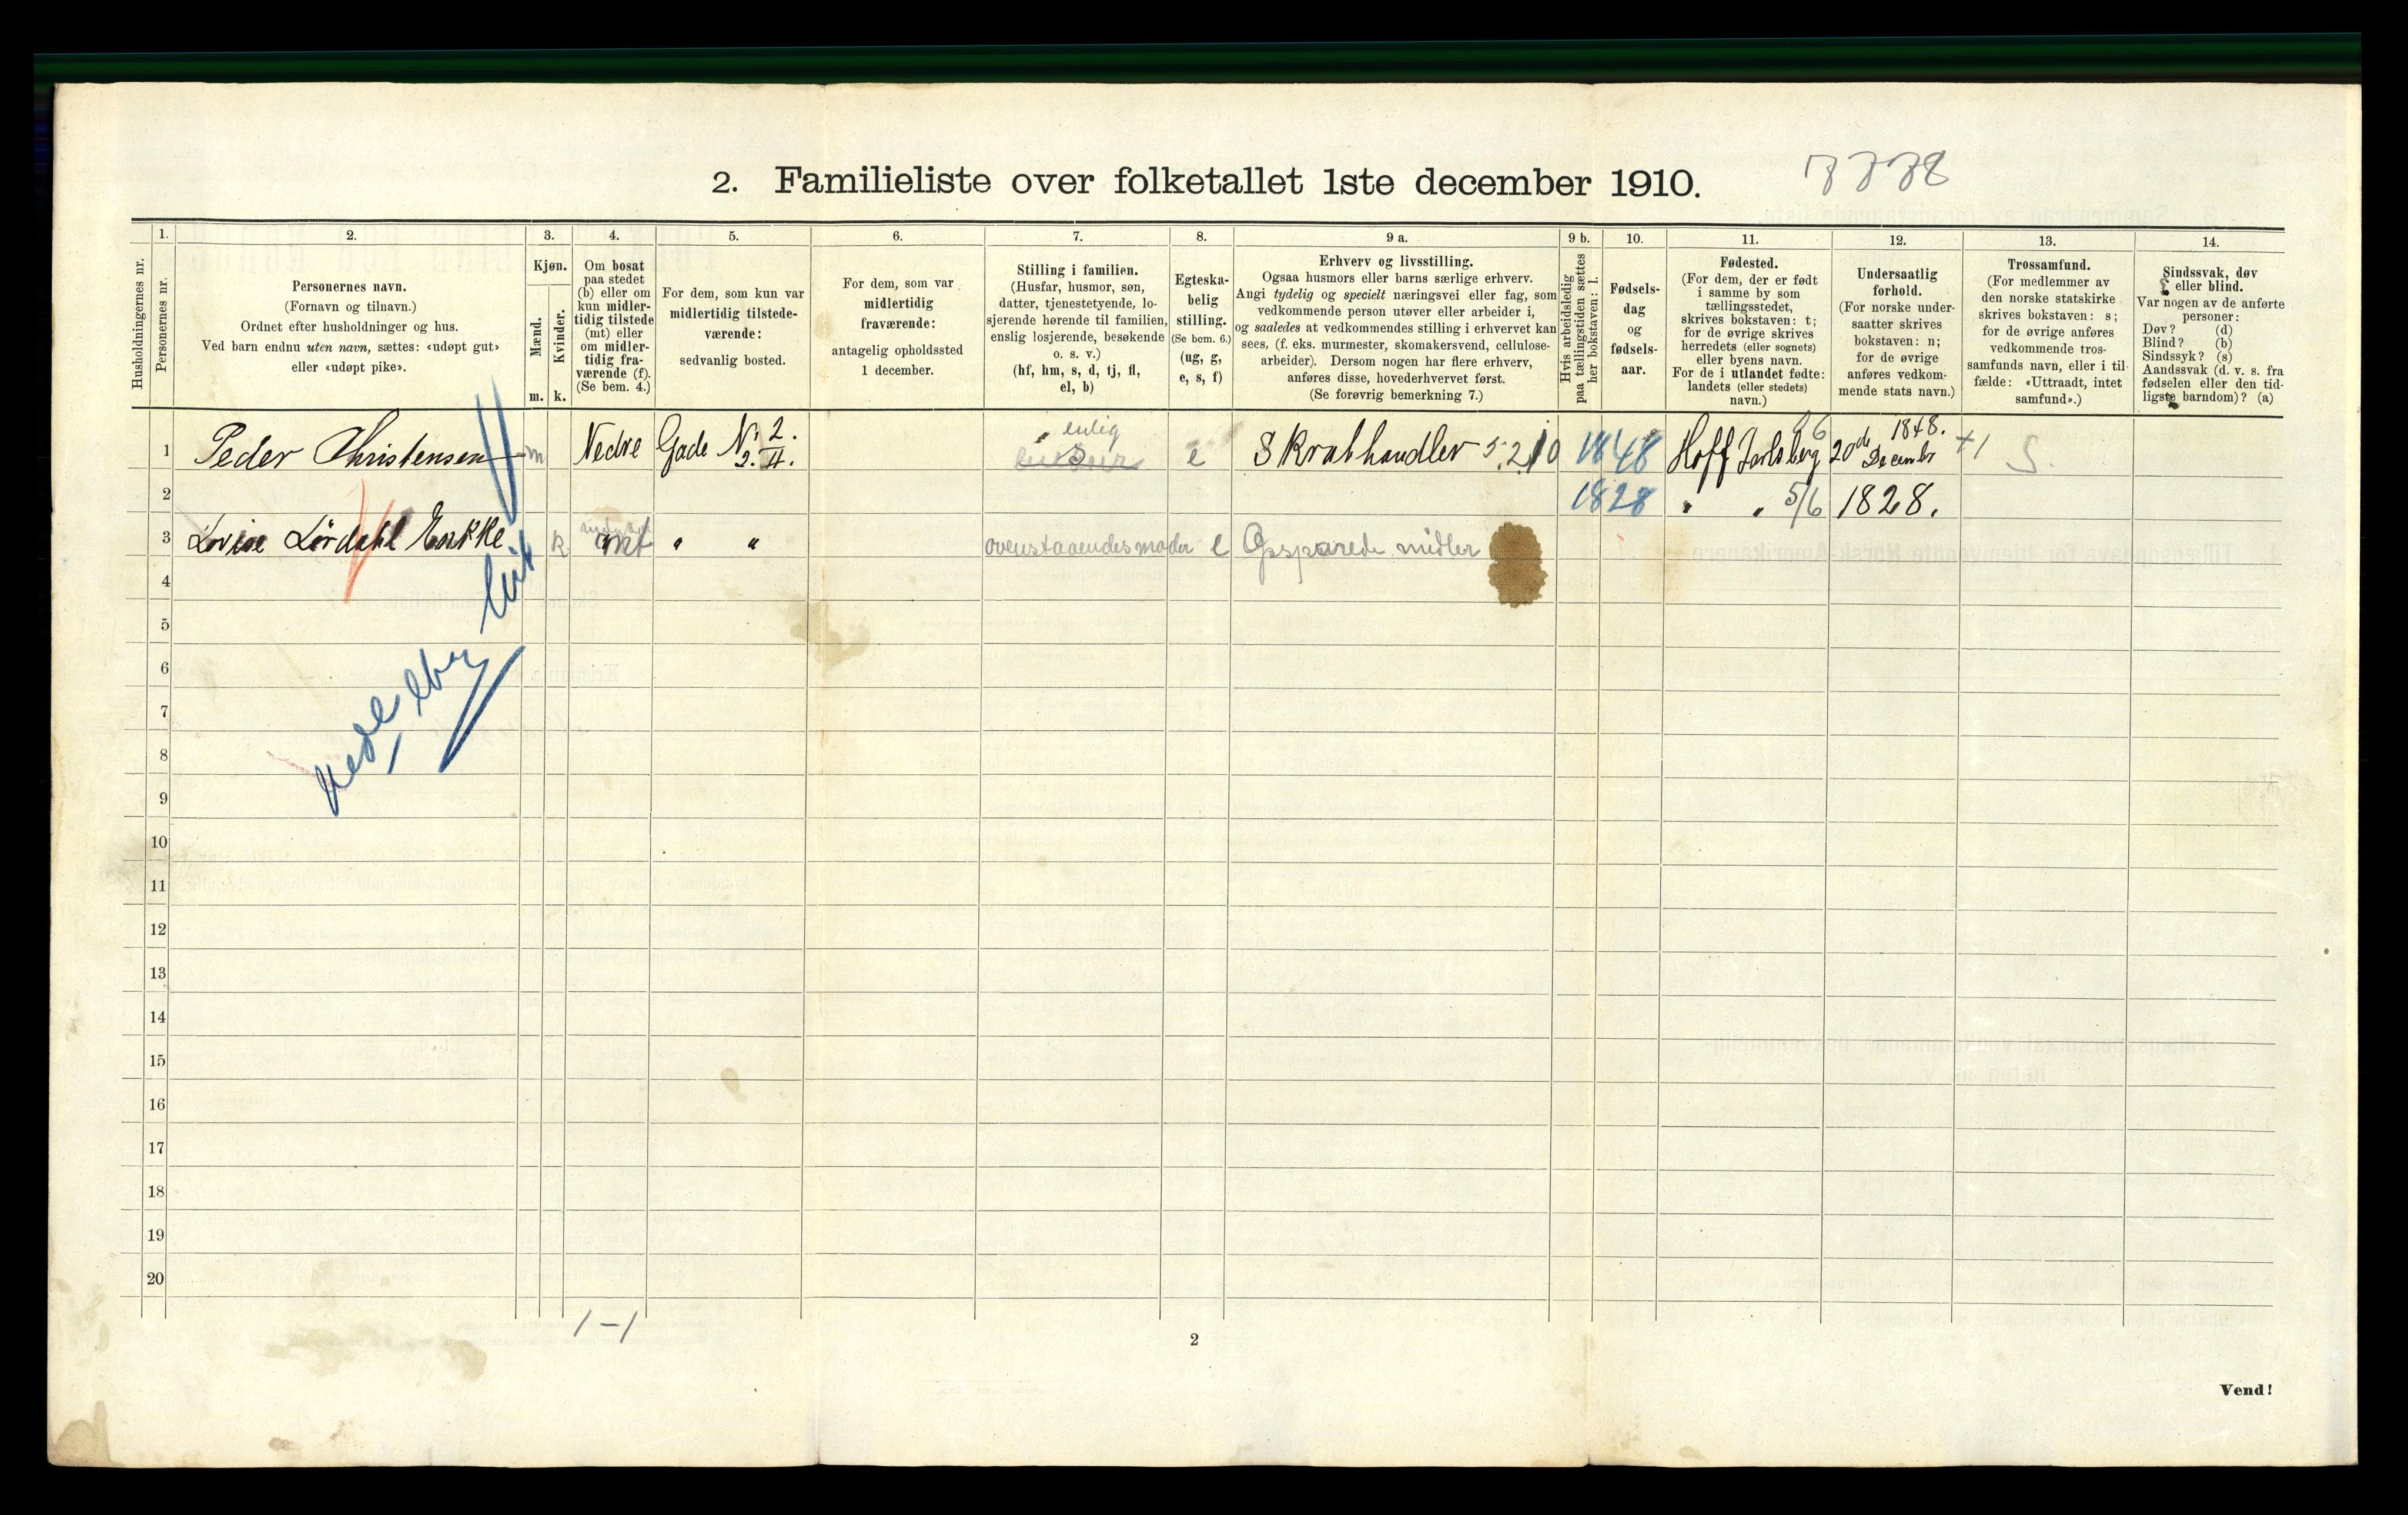 7778
2. Familieliste over folketallet 1ste december 1910.
Husholdningernes nr.
1.
Personernes nr.
2.
Personernes navn.
(Fornavn og tilnavn.)
Ordnet efter husholdninger og hus.
Ved barn endnu uten navn, sættes: «udøpt gut»
eller «udøpt pike».
3.
Kjøn.
Mænd.
Kvinder.
m. k.
4.
Om bosat
paa stedet
(b) eller om
kun midler-
tidig tilstede
(mt) eller
om midler-
tidig fra-
værende (f).
(Se bem. 4.)
5.
For dem, som kun var
midlertidig tilstede-
værende:
sedvanlig bosted.
6.
For dem, som var
midlertidig
fraværende:
antagelig opholdssted
1 december.
7.
Stilling i familien.
(Husfar, husmor, søn,
datter, tjenestetyende, lo-
sjerende hørende til familien,
enslig losjerende, besøkende
o. s. v.)
(hf, hm, s, d, tj, fl,
el, b)
8.
Egteska-
belig
stilling.
(Se bem. 6.)
(ug, g,
e, s, f)
9 a.
Erhverv og livsstilling.
Ogsaa husmors eller barns særlige erhverv.
Angi tydelig og specielt næringsvei eller fag, som
vedkommende person utøver eller arbeider i,
og saaledes at vedkommendes stilling i erhvervet kan
sees, (f. eks. murmester, skomakersvend, cellulose-
arbeider). Dersom nogen har flere erhverv,
anføres disse, hovederhvervet først.
(Se forøvrig bemerkning 7.)
9 b.
Hvis arbeidsledig
paa tællingstiden sættes
her bokstaven: l.
10.
Fødsels-
dag
og
fødsels-
aar.
11.
Fødested.
(For dem, der er født
i samme by som
tællingsstedet,
skrives bokstaven: t;
for de øvrige skrives
herredets (eller sognets)
eller byens navn.
For de i utlandet fødte:
landets (eller stedets)
navn.)
12.
Undersaatlig
forhold.
(For norske under-
saatter skrives
bokstaven: n;
for de øvrige
anføres vedkom-
mende stats navn.)
13.
Trossamfund.
(For medlemmer av
den norske statskirke
skrives bokstaven: s;
for de øvrige anføres
vedkommende tros-
samfunds navn, eller i til-
fælde: «Uttraadt, intet
samfund».)
14.
Sindssvak, døv
eller blind.
Var nogen av de anførte
personer:
Døv? (d)
Blind? (b)
Sindssyk? (s)
Aandssvak (d. v. s. fra
fødselen eller den tid-
ligste barndom)? (a)
enlig
1 Peder Christensen m Nedre Gade No 2. 2. II. s e Skrabhandler 5.210 1848 Hoff Jarlsberg 20de Decembr 1848. +1 S.
2 1828 " " 5/6 1828.
3 Lovise Lørdahl Enkke k mt " " ovenstaaendes moder e Opsparede midler
4
5
6
7
8
9
10
11
12
13
14
15
16
17
18
19
20
1-1
2
Vend!